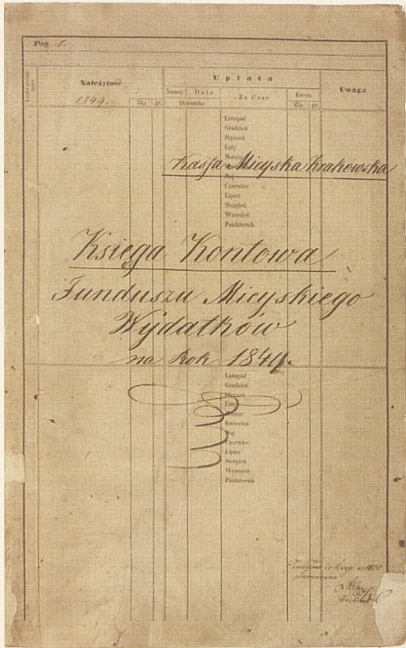 Pag. 1.
Należytość
Upłata
Uwaga
Numer
Data
Za Czas
Kwota
1849.
Złp. gr.
Dziennika
Złp. gr.
Listopad
Grudzień
Styczeń
Luty
Kassa Mieyska Krakowska
Maj
Czerwiec
Lipiec
Sierpień
Wrzesień
Październik
Księga Kontowa
Funduszu Mieyskiego
Wydatków
na Rok 1849.
Listopad
Grudzień
Styczeń
Luty
Marzec
Kwiecień
Maj
Czerwiec
Lipiec
Sierpień
Wrzesień
Październik